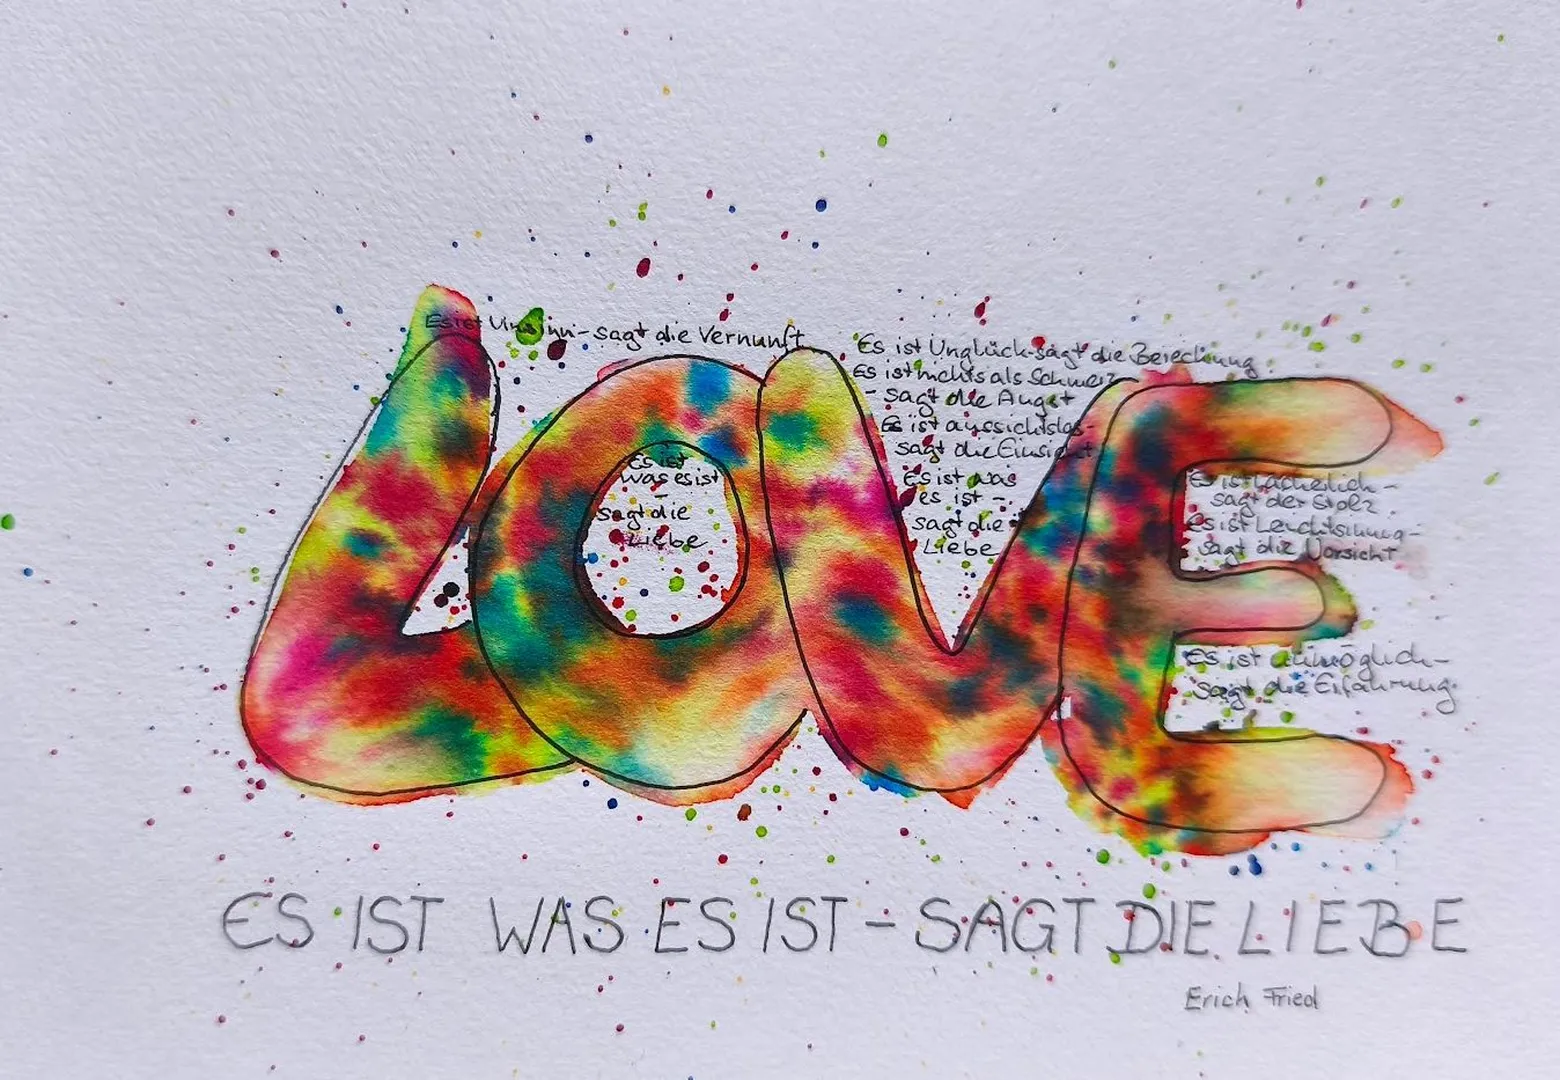 Es ist Unsinn - sagt die Vernunft
Es ist
was es ist
-
sagt die
Liebe
Es ist Unglück - sagt die Berechnung
Es ist nichts als Schmerz
- sagt die Angst
Es ist aussichtslos -
sagt die Einsicht
Es ist was
es ist -
sagt die
Liebe
Es ist lächerlich -
sagt der Stolz
Es ist Leichtsinn -
sagt die Vorsicht
Es ist unmöglich -
sagt die Erfahrung
LOVE
ES IST WAS ES IST - SAGT DIE LIEBE
Erich Fried